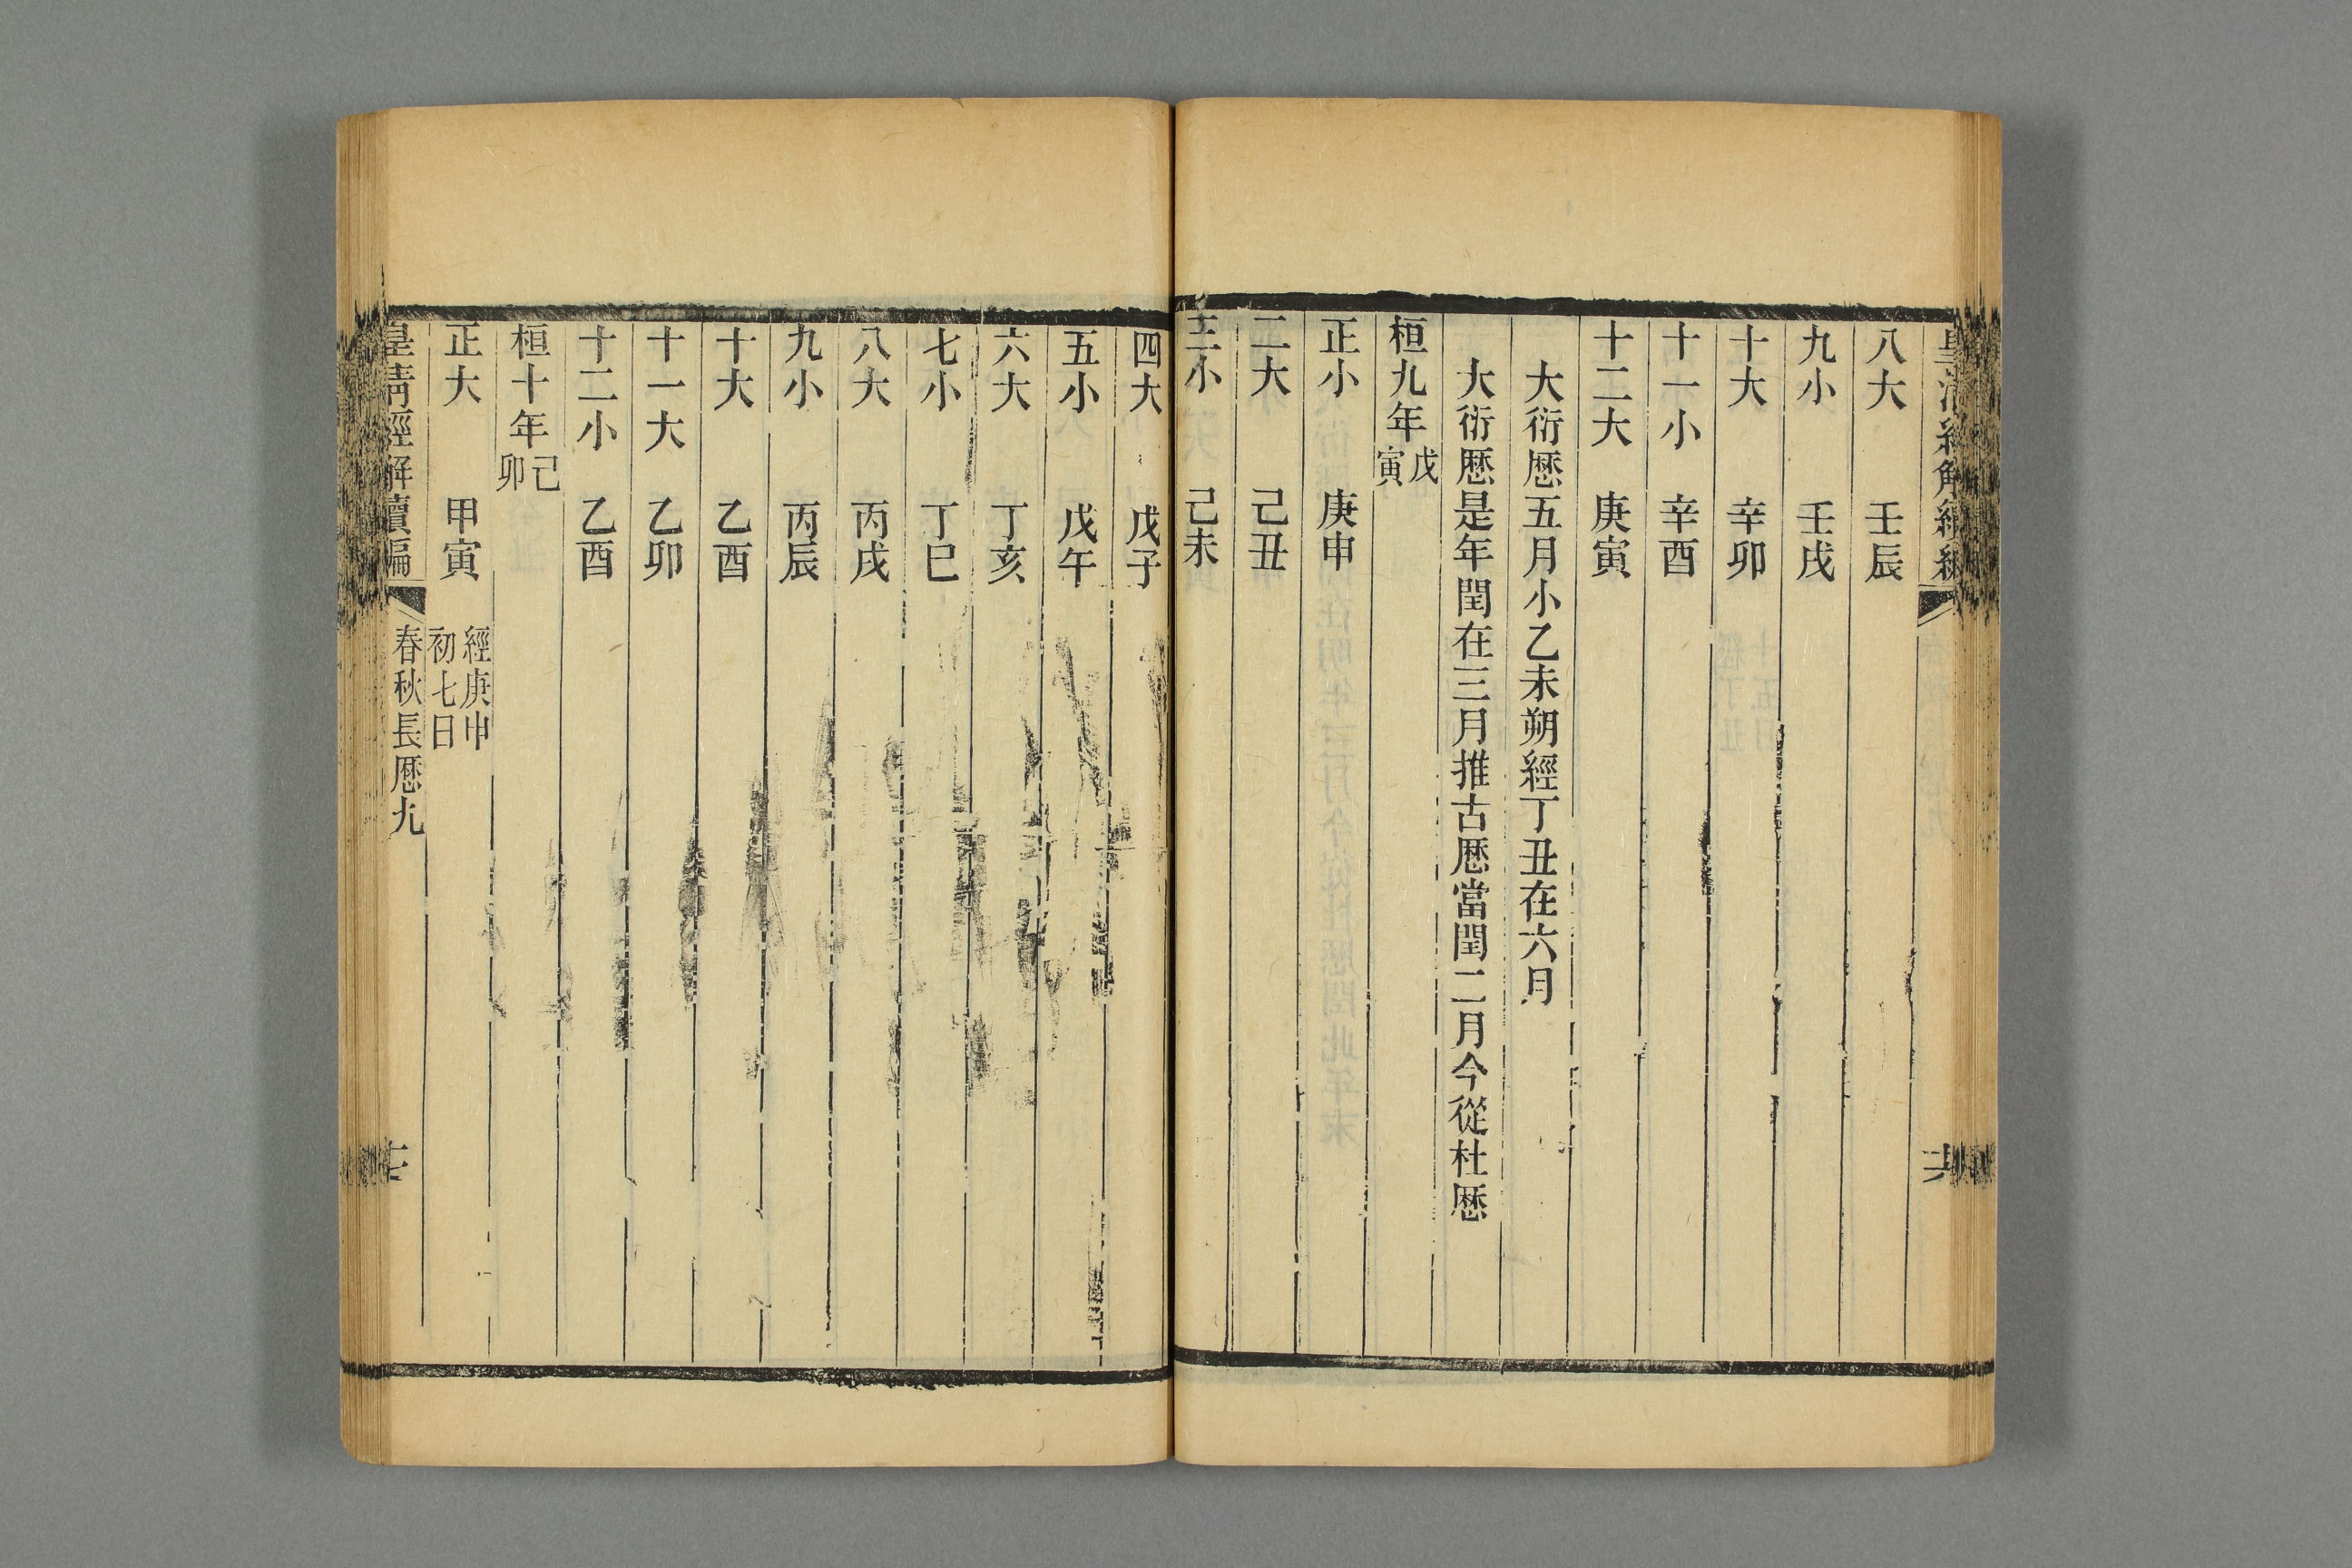 八大 壬辰
九小 壬戌
十大 辛卯
十一小 辛酉
十二大 庚寅
大衍厯五月小乙未朔經丁丑在六月
大衍厯是年閏在三月推古厯當閏二月今從杜厯
桓九年戊寅
正小 庚申
二大 己丑
三小 己未
四大 戊子
五小 戊午
六大 丁亥
七小 丁巳
八大 丙戌
九小 丙辰
十大 乙酉
十一大 乙卯
十二小 乙酉
桓十年己卯
正大 甲寅 經庚申
初七日
皇清經解續編 春秋長厯九